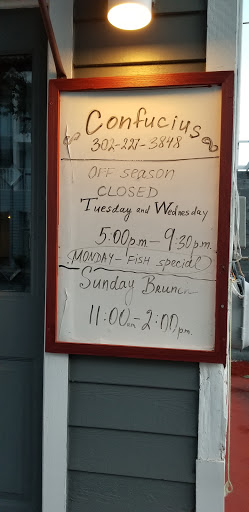 Confucius
302-227-3848
OFF season
CLOSED
Tuesday and Wednesday
5:00pm - 9:30pm.
MONDAY - FISH special
Sunday Brunch
11:00am - 2:00pm.